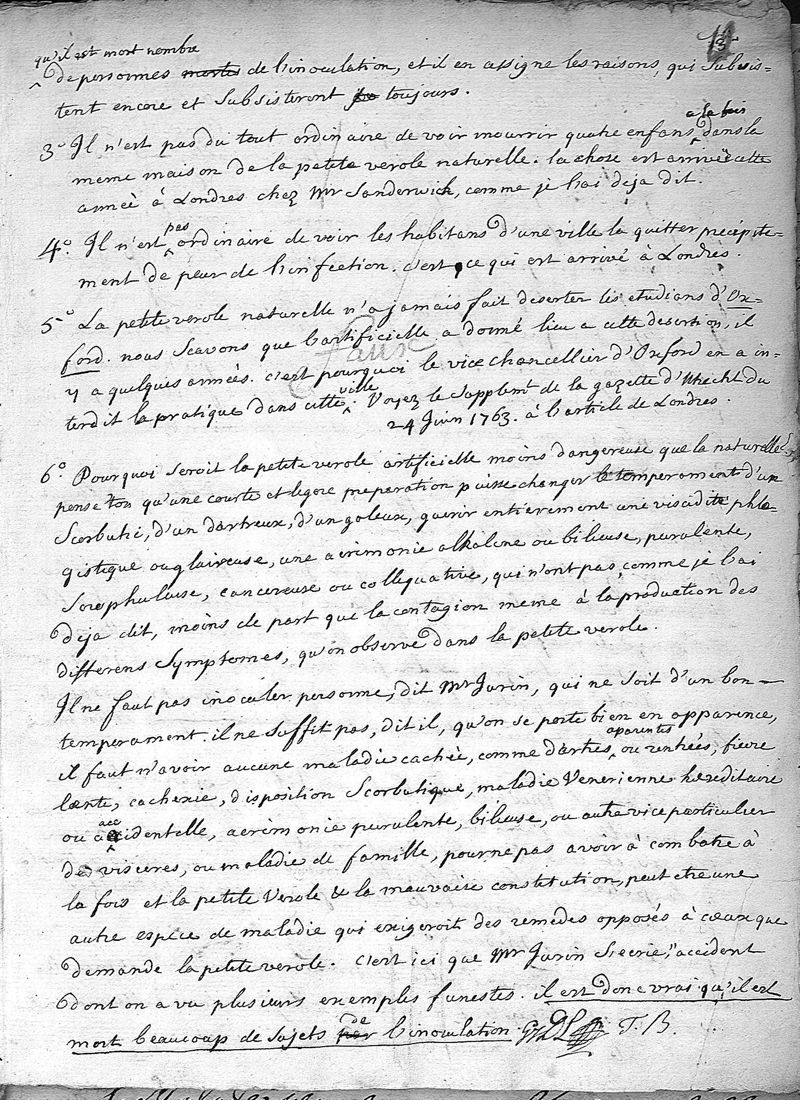 13
qu'il est mort nombre
de personnes mortes de l'inoculation, et il en assigne les raisons, qui subsis-
tent encore et subsisteront toujours.
a la fois
3° Il n'est pas du tout ordinaire de voir mourrir quatre enfans, dans la
meme maison de la petite verole naturelle. la chose est arrivée cette
année à Londres chez Mr Sanderwick, comme je l'ai deja dit.
pas
4° Il n'est ordinaire de voir les habitans d'une ville la quitter précipite-
ment de peur de l'infection. c'est ce qui est arrivé à Londres.
5° La petite verole naturelle n'a jamais fait deserter les etudians d'Ox-
ford. nous scavons que l'artificielle a donné lieu a cette desertion, il
faux
y a quelques années. c'est pourquoi le vice chancellier d'Oxford en a in-
ville
terdit la pratique dans cette. Voyez le supplemt. de la gazette d'Utrecht du
24 Juin 1763. à l'article de Londres.
6° Pourquoi seroit la petite verole artificielle moins dangereuse que la naturelle?
pense t'on qu'une courte et legere preparation puisse changer le temperament d'un
Scorbutic, d'un dartreux, d'un galeux, guerir entièrement une viscidité phlo-
gistique ou glaireuse, une acrimonie alkaline ou bilieuse, purulente,
Scrophuleuse, cancereuse ou colliquative, qui n'ont pas, comme je l'ai
deja dit, moins de part que la contagion meme à la production des
differens symptomes, qu'on observe dans la petite verole.
Il ne faut pas inoculer personne, dit Mr Jurin, qui ne soit d'un bon
temperament. il ne suffit pas, dit il, qu'on se porte bien en apparence,
aparentes
il faut n'avoir aucune maladie cachée, comme dartres, ou rentrées, fievre
lente, cachexie, disposition Scorbutique, maladie Venerienne hereditaire
acc
ou accidentelle, acrimonie purulente, bilieuse, ou autre vice particulier
des visceres, ou maladie de famille, pour ne pas avoir à combatre à
la fois et la petite Verole & la mauvaise constitution, peut etre une
autre espèce de maladie qui exigeroit des remedes opposés à ceux que
demande la petite verole. c'est ici que Mr Jurin s'ecrie, "accident
dont on a vu plusieurs exemples funestes. il est donc vrai qu'il est
de
mort beaucoup de sujets par l'inoculation. T. B.